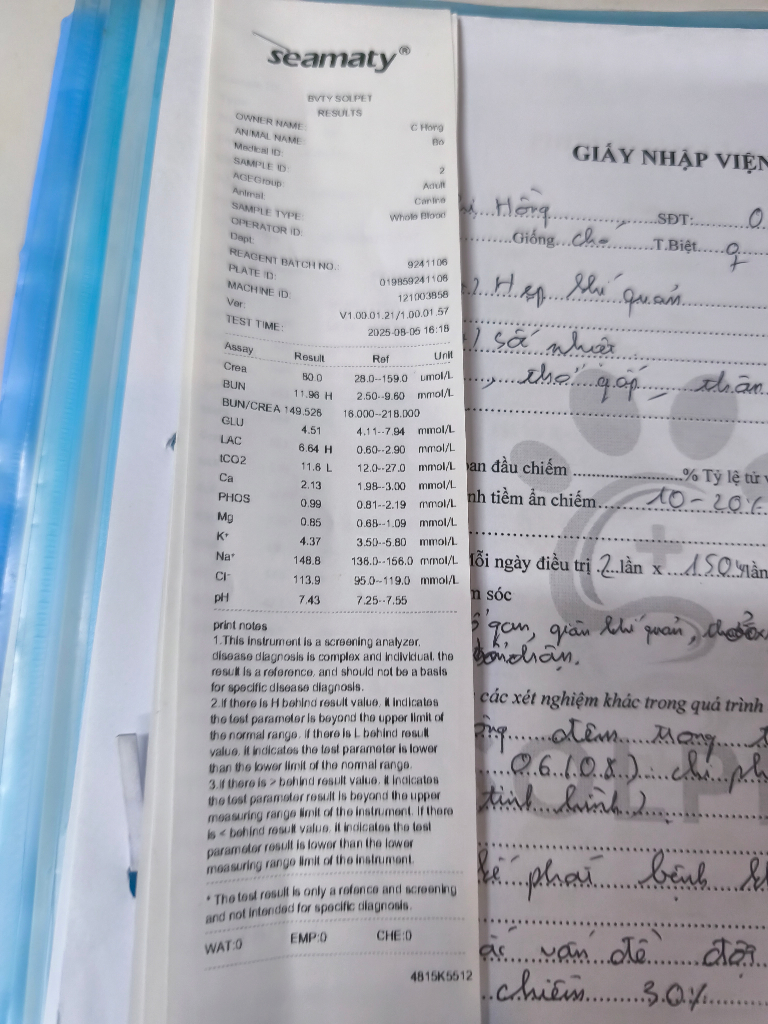 seamaty®
BVTY SOLPET
RESULTS
OWNER NAME: C Hong
ANIMAL NAME: Bo
Medical ID:
SAMPLE ID: 2
AGEGroup: Adult
Animal: Canine
SAMPLE TYPE: Whole Blood
OPERATOR ID:
Dept:
REAGENT BATCH NO.: 9241106
PLATE ID: 019859241106
MACHINE ID: 121003858
Ver: V1.00.01.21/1.00.01.57
TEST TIME: 2025-08-05 16:18
Assay Result Ref Unit
Crea 80.0 28.0--159.0 umol/L
BUN 11.96 H 2.50--9.60 mmol/L
BUN/CREA 149.526 16.000--218.000
GLU 4.51 4.11--7.94 mmol/L
LAC 6.64 H 0.60--2.90 mmol/L
tCO2 11.6 L 12.0--27.0 mmol/L
Ca 2.13 1.98--3.00 mmol/L
PHOS 0.99 0.81--2.19 mmol/L
Mg 0.85 0.68--1.09 mmol/L
K⁺ 4.37 3.50--5.80 mmol/L
Na⁺ 148.8 136.0--156.0 mmol/L
Cl⁻ 113.9 95.0--119.0 mmol/L
pH 7.43 7.25--7.55
print notes
1.This instrument is a screening analyzer,
disease diagnosis is complex and individual, the
result is a reference, and should not be a basis
for specific disease diagnosis.
2.if there is H behind result value, it indicates
the test parameter is beyond the upper limit of
the normal range. if there is L behind result
value, it indicates the test parameter is lower
than the lower limit of the normal range.
3.if there is > behind result value, it indicates
the test parameter result is beyond the upper
measuring range limit of the instrument. If there
is < behind result value, it indicates the test
parameter result is lower than the lower
measuring range limit of the instrument.
* The test result is only a refence and screening
and not intended for specific diagnosis.
WAT:0 EMP:0 CHE:0
4815K5512
GIẤY NHẬP VIỆN
Hồng SĐT: 0
Giống chó T.Biệt ♀
Hẹp khí quản
số nhiệt
, thở gấp, thân
ban đầu chiếm % Tỷ lệ tử v
nh tiềm ẩn chiếm 10-20%
Mỗi ngày điều trị 2 lần x 150 lần
n sóc
gan, giãn khí quản,
các xét nghiệm khác trong quá trình
đêm trong t
06/08) chi ph
tình hình)
kế phát bệnh kh
ác vấn đề đợ
chiếm 30%